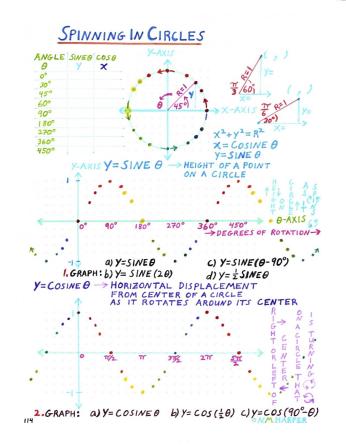 SPINNING IN CIRCLES
ANGLE SINEθ COSθ
θ Y X
0°
30°
45°
60°
90°
180°
270°
360°
450°
Y-AXIS
R=1
Y
θ
45°
X
X-AXIS
( , )
R=1
Y=
π/3 60°
X=
( , )
π/6 R=1
30°
Y=
X=
X²+Y²=R²
X=COSINE θ
Y=SINE θ
Y-AXIS Y=SINE θ → HEIGHT OF A POINT
ON A CIRCLE
1
0° 90° 180° 270° 360° 450° θ-AXIS
→DEGREES OF ROTATION→
-1
a) Y=SINE θ c) Y=SINE(θ-90°)
1. GRAPH: b) Y=SINE(2θ) d) Y=½SINE θ
Y=COSINE θ → HORIZONTAL DISPLACEMENT
FROM CENTER OF A CIRCLE
AS IT ROTATES AROUND ITS CENTER
1
0° π/2 π 3π/2 2π 5π/2
-1
RIGHT OR LEFT OF
CENTER
ON A CIRCLE THAT
IS TURNING
2. GRAPH: a) Y=COSINE θ b) Y=COS(½θ) c) Y=COS(90°-θ)
114
© N.M. HARPER